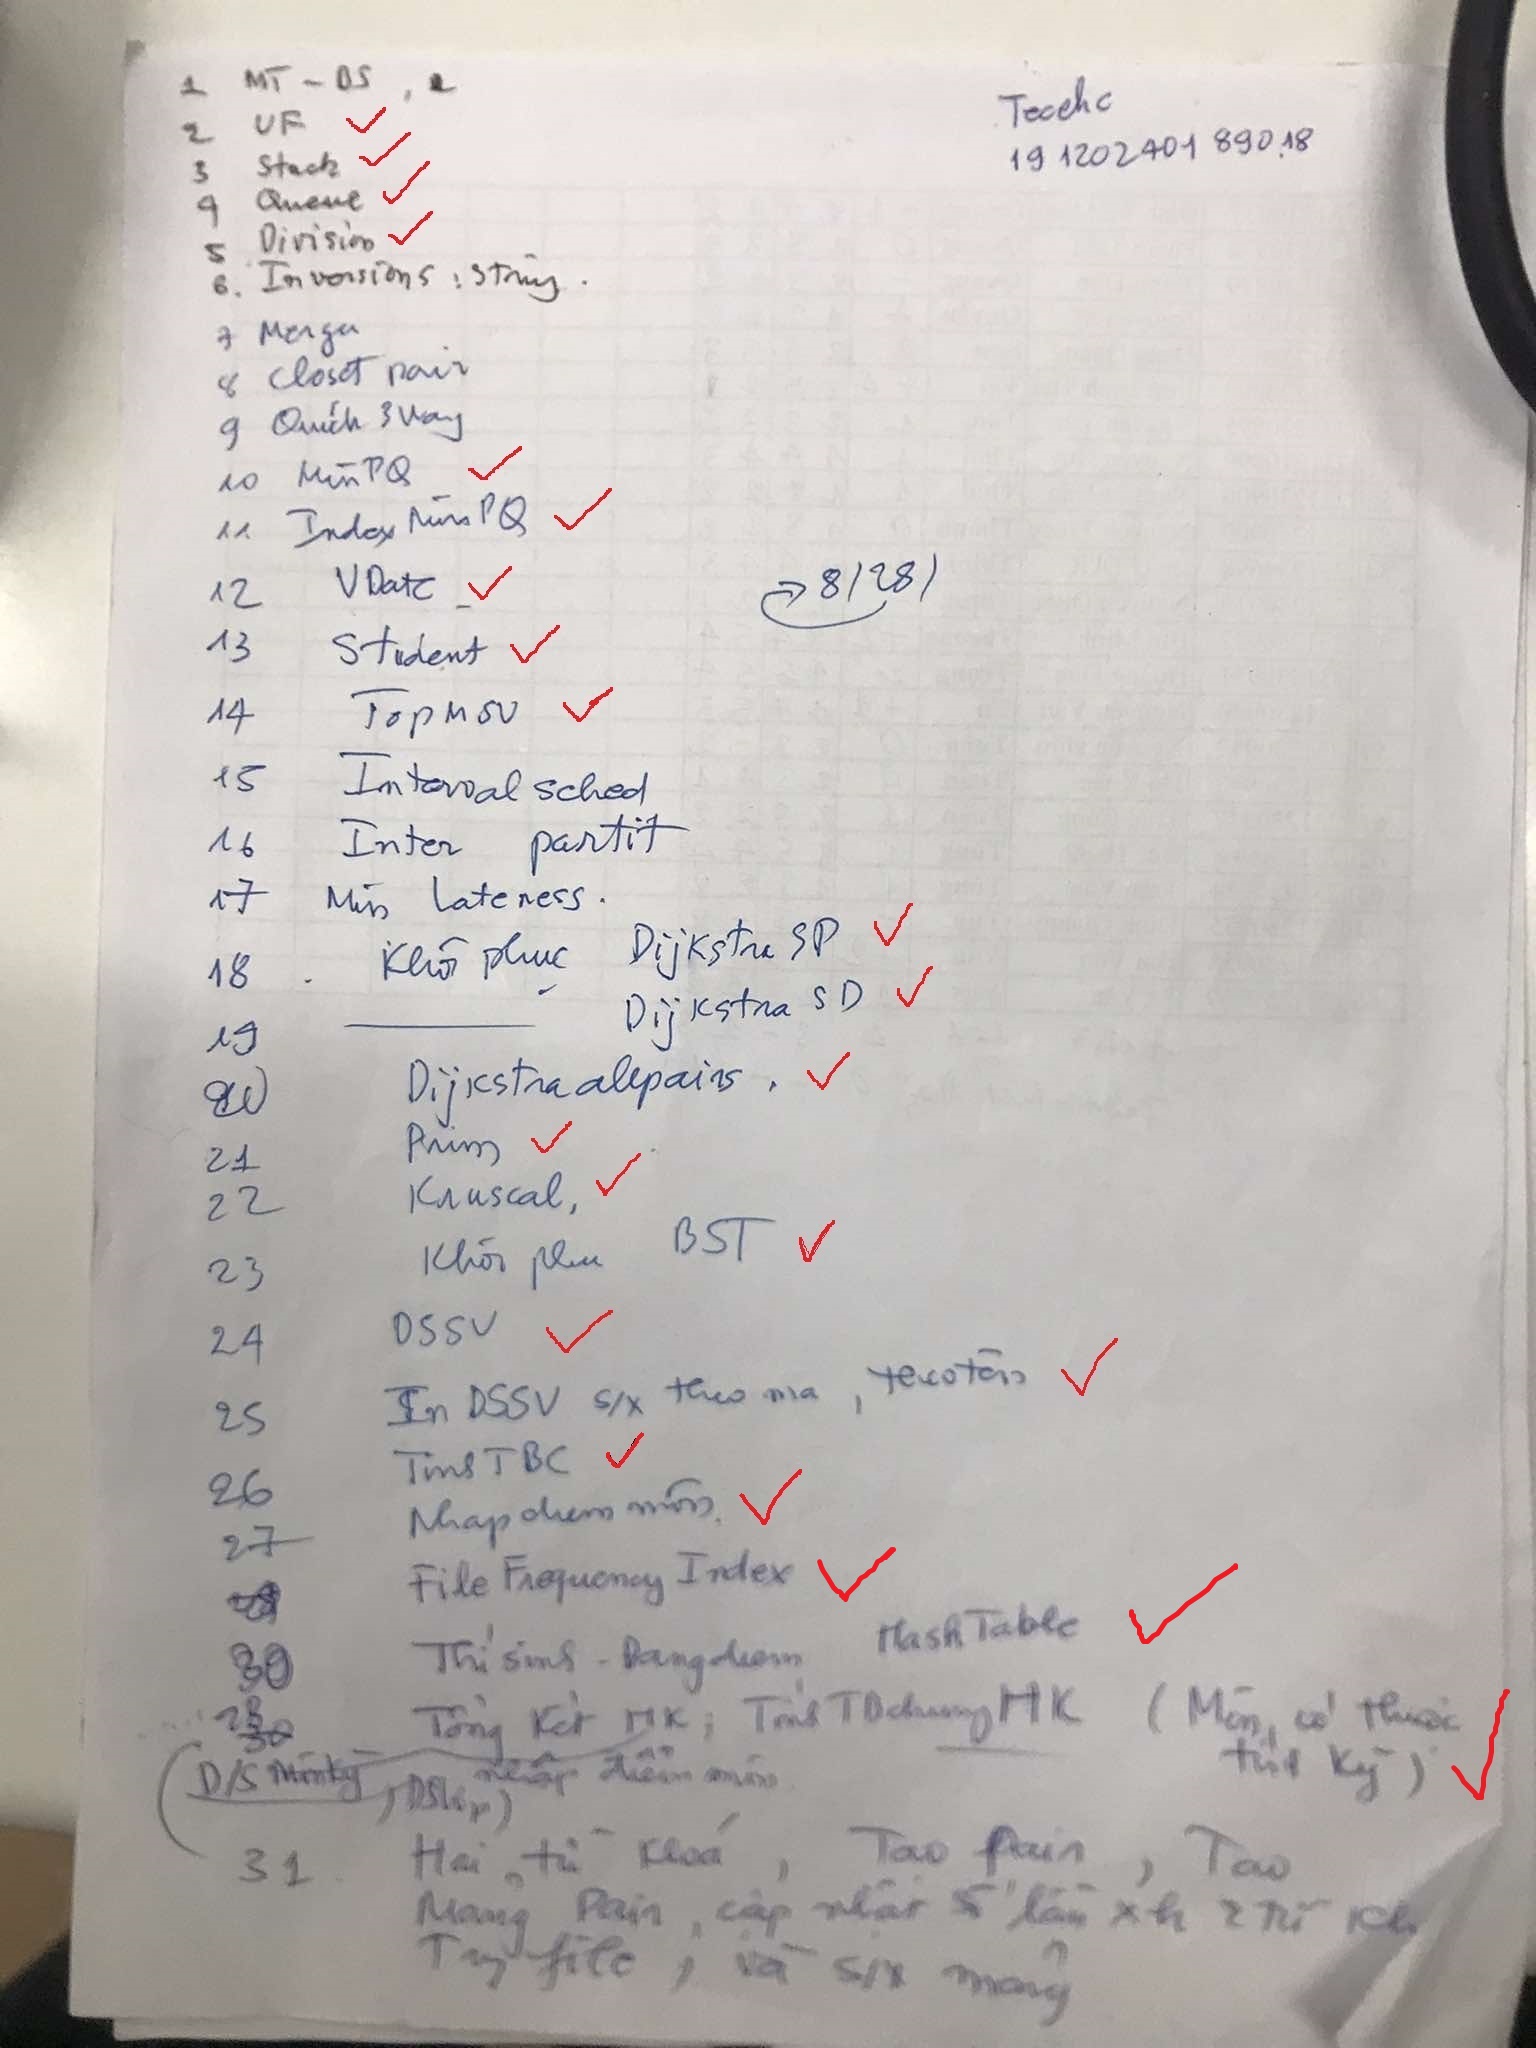 1 MT - DS,
Tecehc
19 1202401 890.18
2 UF
3 Stack
4 Queue
5 Division
6. Inversions : String.
7 Merge
8 closet pair
9 Quick 3 Way
10 Min PQ
11 Index Min PQ
12 VDate
8/28/
13 Student
14 Top MSV
15 Interval sched
16 Inter partit
17 Min Lateness.
18 . Khôi phục Dijkstra SP
19 Dijkstra SD
20 Dijkstra allpairs.
21 Prim
22 Kruscal,
23 Khôi phu BST
24 DSSV
25 In DSSV s/x theo ma, theo tên
26 Tinh TBC
27 Nhap diem môn.
File Frequency Index
30 Thí sinh - Bang diem Hash Table
Tổng Kết HK; Tính TB chung HK (Môn có thuộc
tính Kỳ)
nhập điểm môn
31. Hai từ khoá, Tạo Pair, Tạo
Mảng Pair, cập nhật số lần xh 2 từ kh
Trg file, và s/x mảng